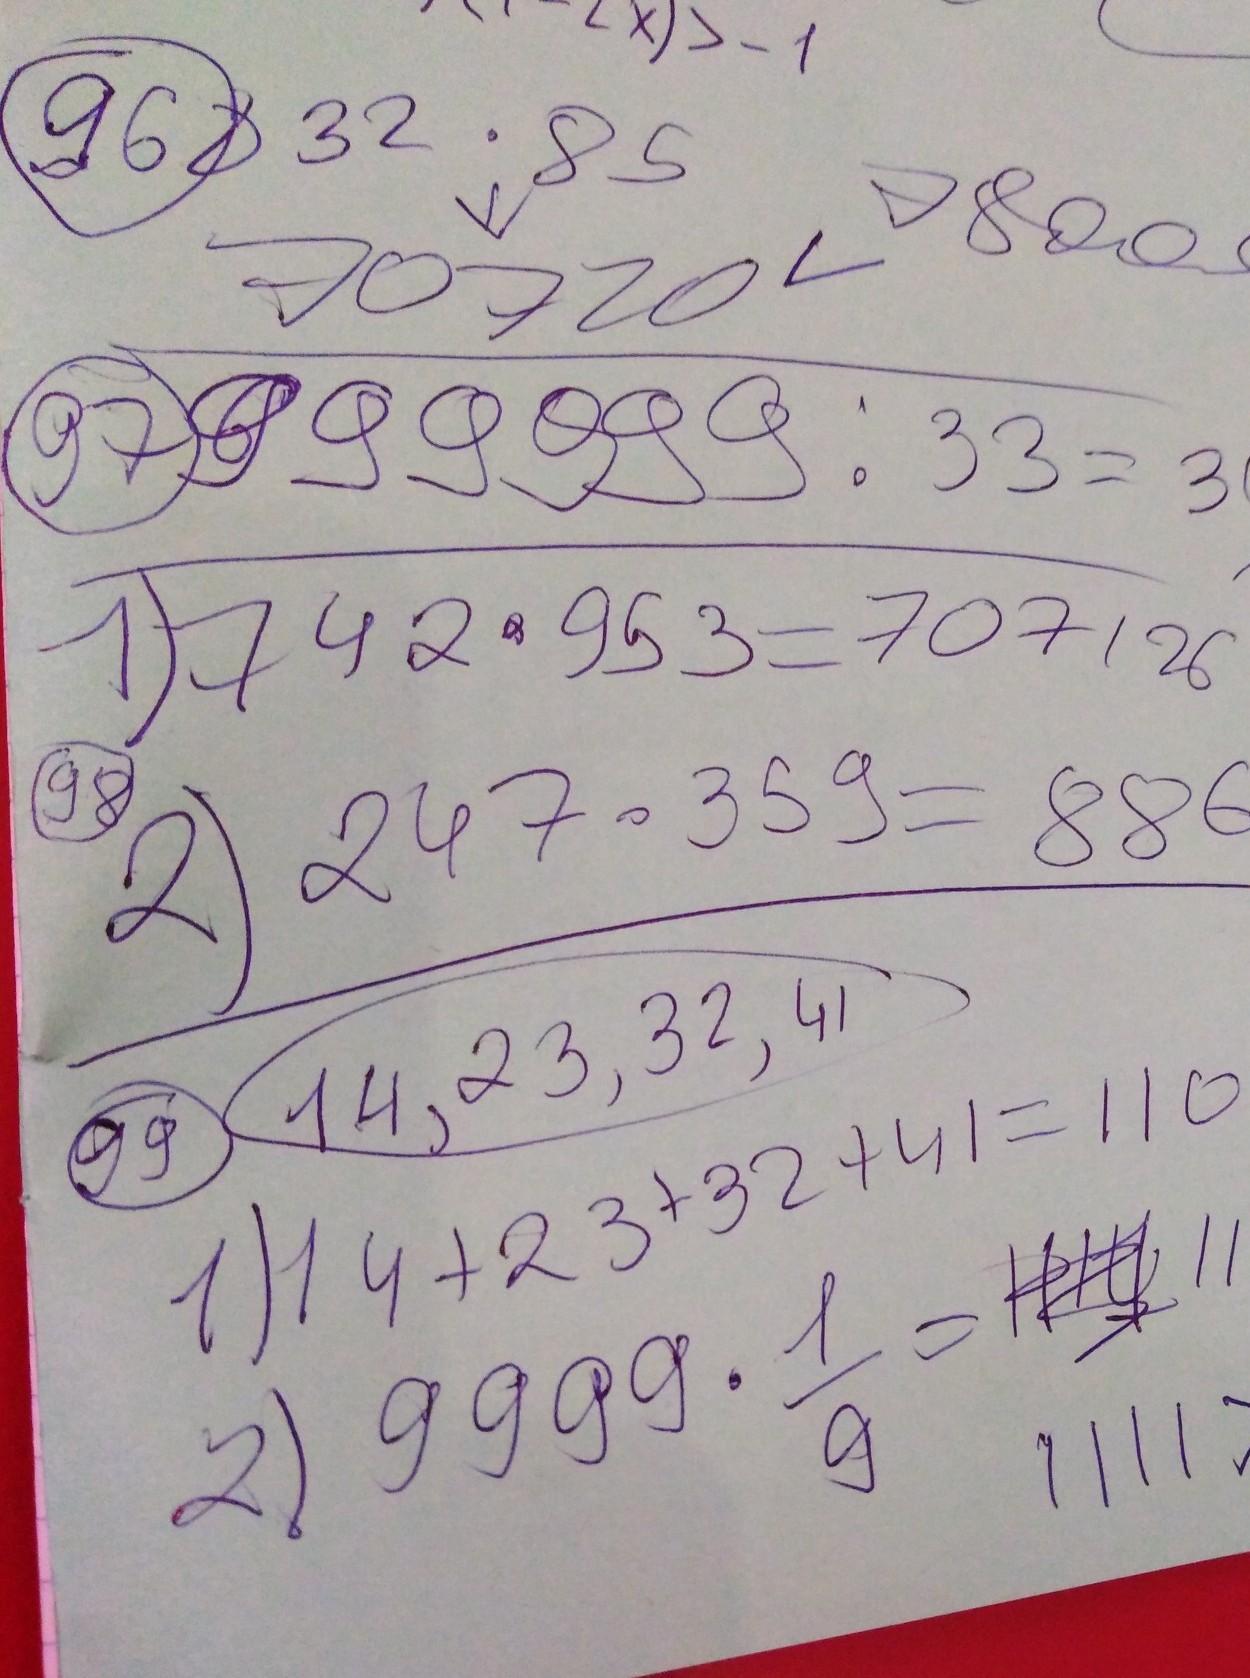 x) > -1
96) 832 · 85
70720 < 7800
97 999999 : 33 = 3
1) 742 · 953 = 707126
98
2) 247 · 359 = 886
99 14, 23, 32, 41
1) 14 + 23 + 32 + 41 = 110
2) 9999 · 1/9 = 11
1111 >